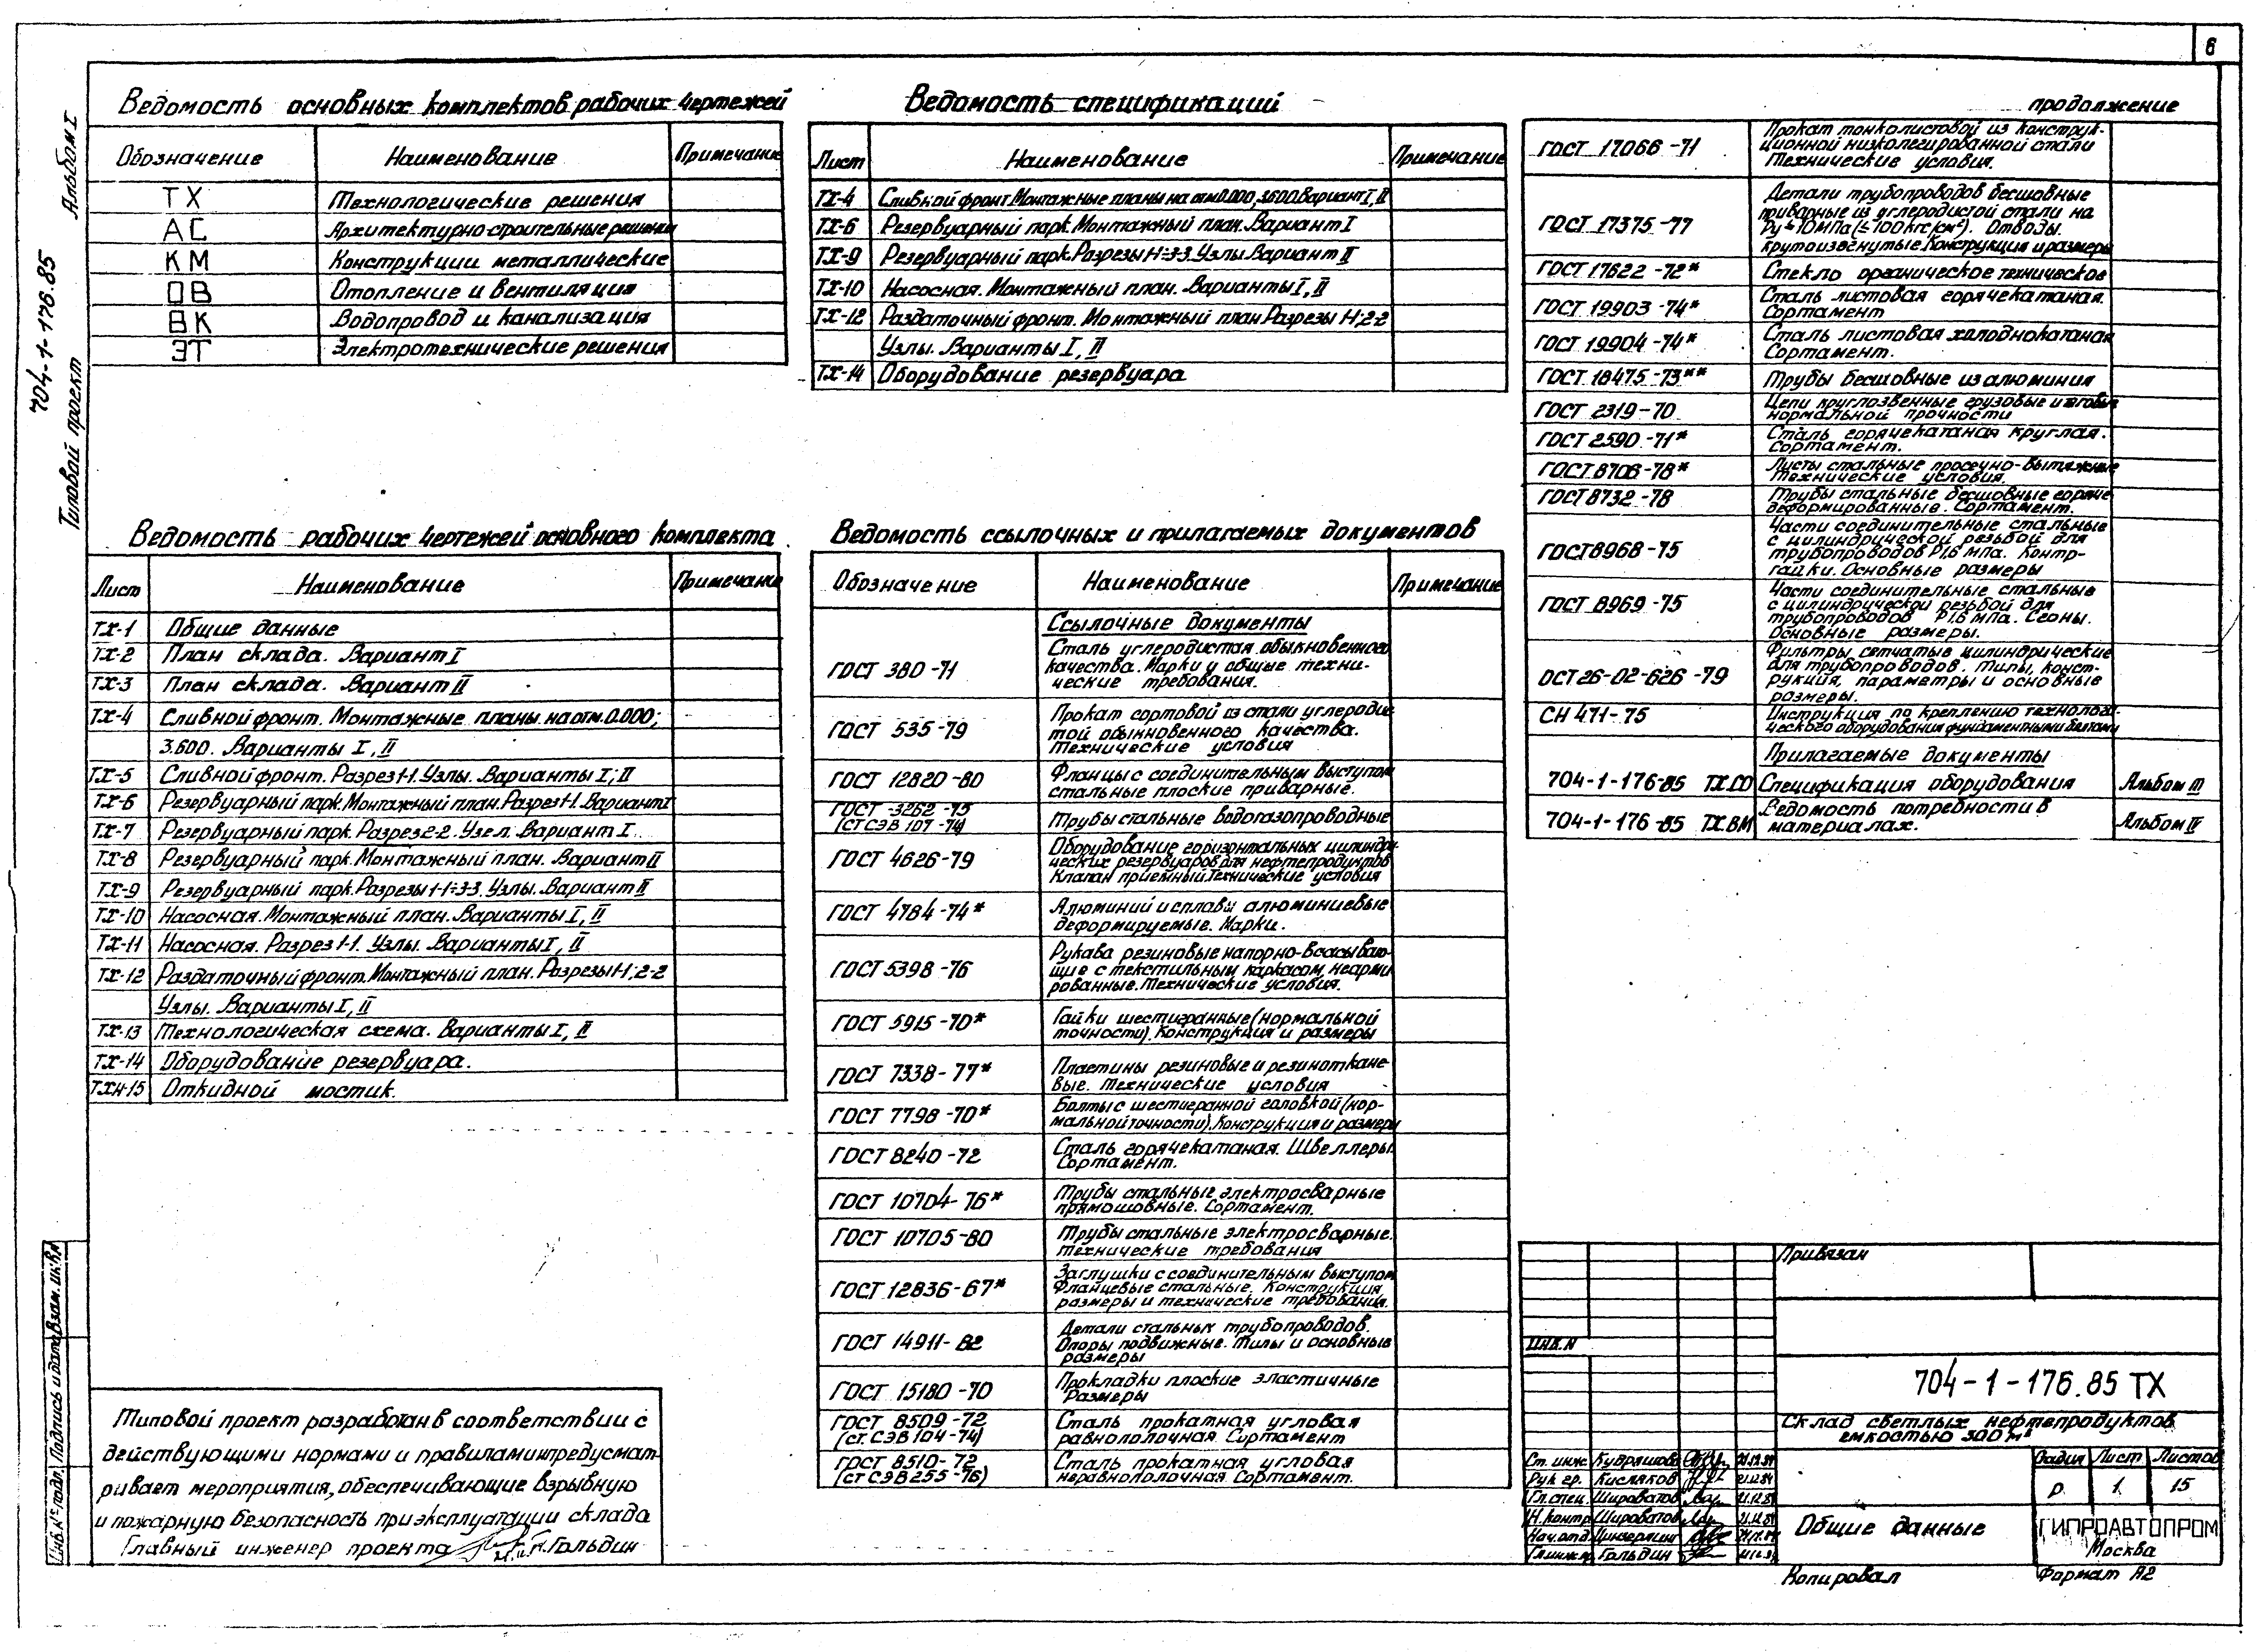 6
Альбом I
704-1-176.85
Типовой проект
Ведомость основных комплектов рабочих чертежей
Обозначение Наименование Примечание
ТХ Технологические решения
АС Архитектурно-строительные решения
КМ Конструкции металлические
ОВ Отопление и вентиляция
ВК Водопровод и канализация
ЭТ Электротехнические решения
Ведомость рабочих чертежей основного комплекта
Лист Наименование Примечание
ТХ-1 Общие данные
ТХ-2 План склада. Вариант I
ТХ-3 План склада. Вариант II
ТХ-4 Сливной фронт. Монтажные планы на отм. 0.000;
3.600. Варианты I, II
ТХ-5 Сливной фронт. Разрез 1-1. Узлы. Варианты I; II
ТХ-6 Резервуарный парк. Монтажный план. Разрез 1-1. Вариант I
ТХ-7 Резервуарный парк. Разрез 2-2. Узел. Вариант I.
ТХ-8 Резервуарный парк. Монтажный план. Вариант II
ТХ-9 Резервуарный парк. Разрезы 1-1÷3-3. Узлы. Вариант II
ТХ-10 Насосная. Монтажный план. Варианты I, II
ТХ-11 Насосная. Разрез 1-1. Узлы. Варианты I, II
ТХ-12 Раздаточный фронт. Монтажный план. Разрезы 1-1, 2-2
Узлы. Варианты I, II
ТХ-13 Технологическая схема. Варианты I, II
ТХ-14 Оборудование резервуара.
ТХН-15 Откидной мостик.
Типовой проект разработан в соответствии с
действующими нормами и правилами и предусмат-
ривает мероприятия, обеспечивающие взрывную
и пожарную безопасность при эксплуатации склада
Главный инженер проекта Гольдин
Взам. инв.№
Подпись и дата
Инв.№ подл.
Ведомость спецификаций
Лист Наименование Примечание
ТХ-4 Сливной фронт. Монтажные планы на отм 0.000, 3.600. Вариант I, II
ТХ-6 Резервуарный парк. Монтажный план. Вариант I
ТХ-9 Резервуарный парк. Разрезы 1-1÷3-3. Узлы. Вариант II
ТХ-10 Насосная. Монтажный план. Варианты I, II
ТХ-12 Раздаточный фронт. Монтажный план. Разрезы 1-1; 2-2
Узлы. Варианты I, II
ТХ-14 Оборудование резервуара
Ведомость ссылочных и прилагаемых документов
Обозначение Наименование Примечание
Ссылочные документы
ГОСТ 380-71 Сталь углеродистая обыкновенного
качества. Марки и общие техни-
ческие требования.
ГОСТ 535-79 Прокат сортовой из стали углеродис
той обыкновенного качества.
Технические условия
ГОСТ 12820-80 Фланцы с соединительным выступом
стальные плоские приварные.
ГОСТ 3262-75
(СТ СЭВ 107-74) Трубы стальные водогазопроводные
ГОСТ 4626-79 Оборудование горизонтальных цилиндри-
ческих резервуаров для нефтепродуктов
Клапан приемный. Технические условия
ГОСТ 4784-74* Алюминий и сплавы алюминиевые
деформируемые. Марки.
ГОСТ 5398-76 Рукава резиновые напорно-всасываю-
щие с текстильным каркасом, неарми
рованные. Технические условия.
ГОСТ 5915-70* Гайки шестигранные (нормальной
точности). Конструкция и размеры
ГОСТ 7338-77* Пластины резиновые и резиноткане-
вые. Технические условия
ГОСТ 7798-70* Болты с шестигранной головкой (нор-
мальной точности). Конструкция и размеры
ГОСТ 8240-72 Сталь горячекатаная. Швеллеры.
Сортамент.
ГОСТ 10704-76* Трубы стальные электросварные
прямошовные. Сортамент.
ГОСТ 10705-80 Трубы стальные электросварные.
Технические требования
ГОСТ 12836-67* Заглушки с соединительным выступом
фланцевые стальные. Конструкция,
размеры и технические требования.
ГОСТ 14911-82 Детали стальных трубопроводов.
Опоры подвижные. Типы и основные
размеры
ГОСТ 15180-70 Прокладки плоские эластичные
Размеры
ГОСТ 8509-72
(ст. СЭВ 104-74) Сталь прокатная угловая
равнополочная. Сортамент
ГОСТ 8510-72
(СТ СЭВ 255-76) Сталь прокатная угловая
неравнополочная. Сортамент.
продолжение
ГОСТ 17066-71 Прокат тонколистовой из конструк-
ционной низколегированной стали
Технические условия.
ГОСТ 17375-77 Детали трубопроводов бесшовные
приварные из углеродистой стали на
Ру≤10МПа (≤100кгс/см²). Отводы.
крутоизогнутые. Конструкция и размеры
ГОСТ 17622-72* Стекло органическое техническое
ГОСТ 19903-74* Сталь листовая горячекатаная.
Сортамент
ГОСТ 19904-74* Сталь листовая холоднокатаная
Сортамент.
ГОСТ 18475-73** Трубы бесшовные из алюминия
ГОСТ 2319-70 Цепи круглозвенные грузовые и тяговые
нормальной прочности
ГОСТ 2590-71* Сталь горячекатаная круглая.
Сортамент.
ГОСТ 8706-78* Листы стальные просечно-вытяжные
Технические условия.
ГОСТ 8732-78 Трубы стальные бесшовные горяче-
деформированные. Сортамент.
ГОСТ 8968-75 Части соединительные стальные
с цилиндрической резьбой для
трубопроводов Р1,6 МПа. Контр-
гайки. Основные размеры
ГОСТ 8969-75 Части соединительные стальные
с цилиндрической резьбой для
трубопроводов Р1,6 мПа. Сгоны.
Основные размеры.
ОСТ 26-02-626-79 Фильтры сетчатые цилиндрические
для трубопроводов. Типы, конст-
рукция, параметры и основные
размеры.
СН 471-75 Инструкция по креплению технологи-
ческого оборудования фундаментными болтами
Прилагаемые документы
704-1-176-85 ТХ.СО Спецификация оборудования Альбом III
704-1-176-85 ТХ.ВМ Ведомость потребности в
материалах. Альбом IV
Привязан
ИНВ.N
704-1-176.85 ТХ
Склад светлых нефтепродуктов
емкостью 300 м³
Ст. инж. Кудряшова 21.12.84
Рук. гр. Кисляков 21.12.84
Гл. спец. Широватов 21.12.84
Н. контр. Широватов 21.12.84
Нач. отд.
Гл. инж. пр. Гольдин
Стадия Лист Листов
Р 1 15
Общие данные
ГИПРОАВТОПРОМ
Москва
Копировал
Формат А2